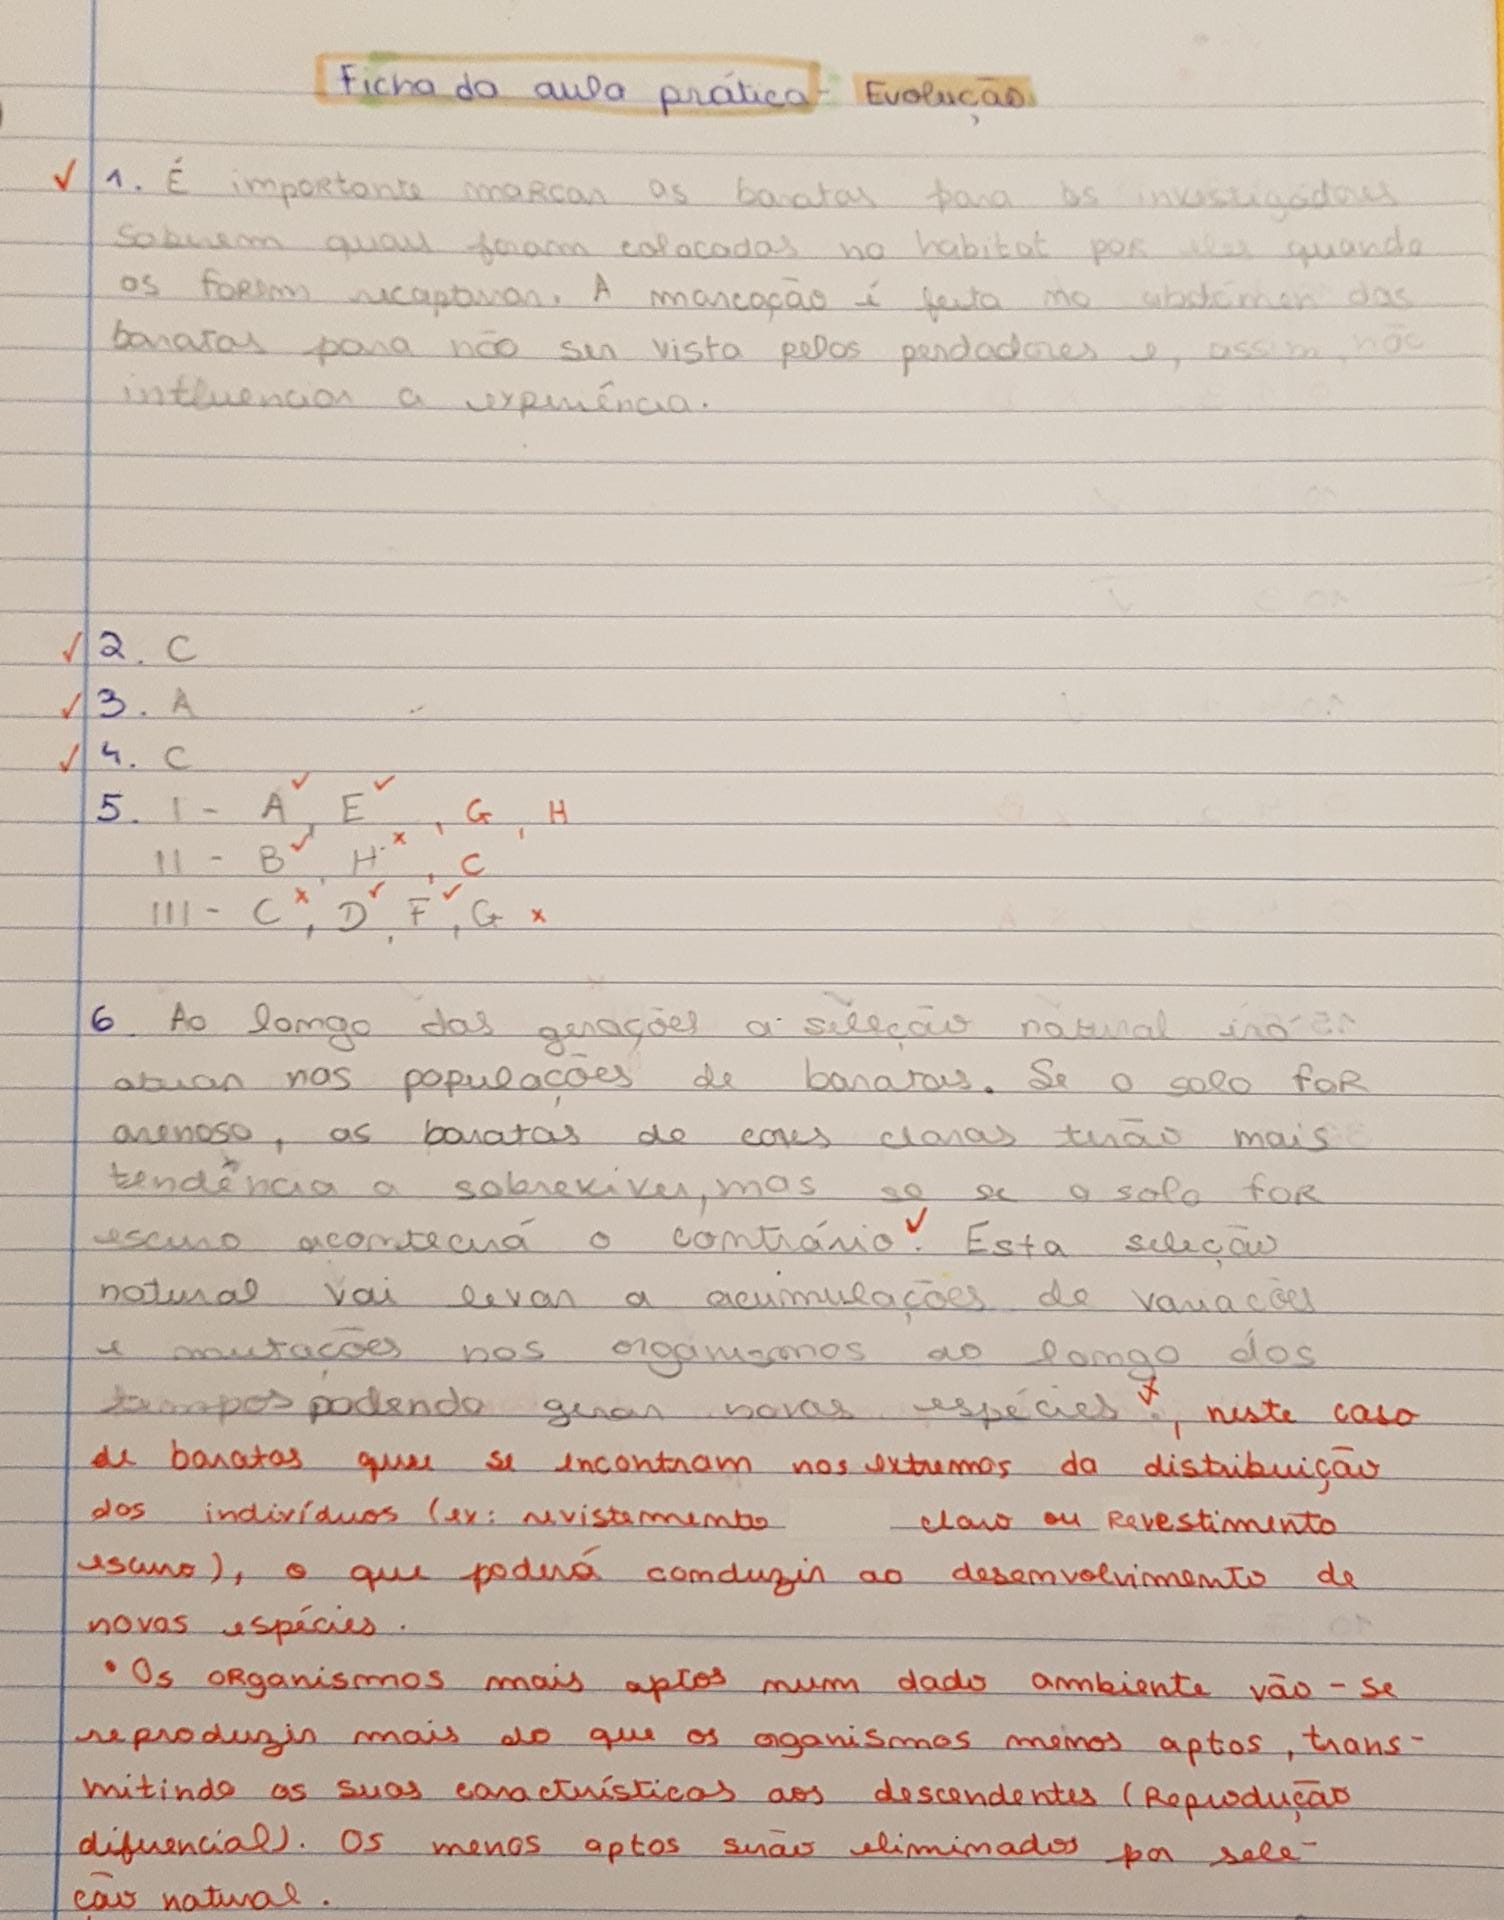 Ficha da aula prática - Evolução
✓ 1. É importante marcar as baratas para os investigadores
saberem quais foram colocadas no habitat por eles quando
os forem recapturar. A marcação é feita no abdómen das
baratas para não ser vista pelos perdadores e, assim, não
influenciar a experiência.
✓ 2. C
✓ 3. A
✓ 4. C
5. I - A ✓, E ✓, G, H
II - B ✓, H x, C
III - C x, D ✓, F ✓, G x
6 Ao longo das gerações a seleção natural irá
atuar nas populações de baratas. Se o solo for
arenoso, as baratas de cores claras terão mais
tendência a sobreviver, mas se se o solo for
escuro acontecerá o contrário ✓. Esta seleção
natural vai levar a acumulações de variações
e mutações nos organismos ao longo dos
tempos podendo gerar novas espécies x., neste caso
de baratas que se encontram nos extremos da distribuição
dos indivíduos (ex: revistemento claro ou revestimento
escuro), o que poderá conduzir ao desenvolvimento de
novas espécies.
• Os organismos mais aptos num dado ambiente vão-se
reproduzir mais do que os oganismos menos aptos, trans-
mitindo as suas características aos descendentes (Reprodução
diferencial). Os menos aptos serão eliminados por sele-
ção natural.